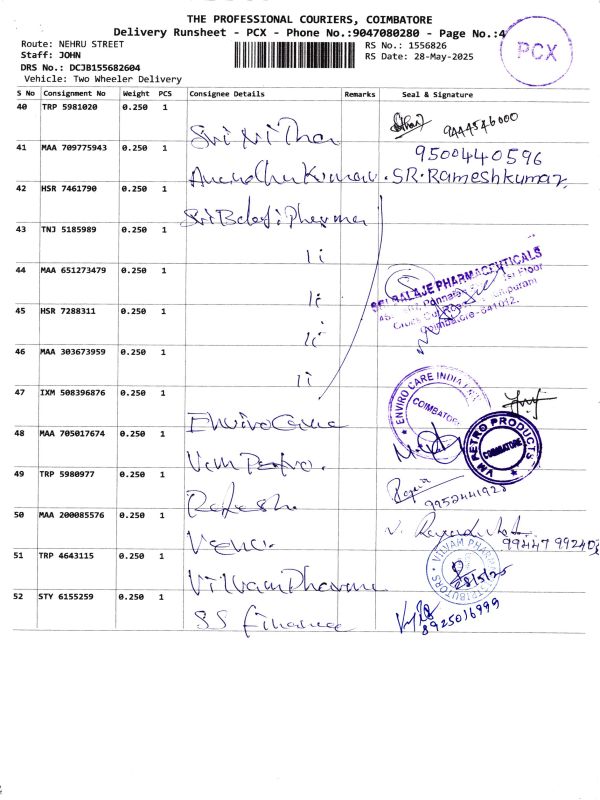 THE PROFESSIONAL COURIERS, COIMBATORE
Delivery Runsheet - PCX - Phone No.:9047080280 - Page No.:4
PCX
Route: NEHRU STREET
RS No.: 1556826
Staff: JOHN
RS Date: 28-May-2025
DRS No.: DCJB155682604
Vehicle: Two Wheeler Delivery
S No Consignment No Weight PCS Consignee Details Remarks Seal & Signature
40 TRP 5981020 0.250 1
9444546000
41 MAA 709775943 0.250 1
9500440596
SR.Rameshkumar
42 HSR 7461790 0.250 1
Sri Balaji Pharma
43 TNJ 5185989 0.250 1
11
44 MAA 651273479 0.250 1
11
SRI BALAJE PHARMACEUTICALS
Coimbatore-641012.
45 HSR 7288311 0.250 1
11
46 MAA 303673959 0.250 1
11
47 IXM 508396876 0.250 1
Enviro Care
ENVIRO CARE INDIA
COIMBATORE
48 MAA 705017674 0.250 1
Vam Petro.
VM PETRO PRODUCTS
COIMBATORE
49 TRP 5980977 0.250 1
Rakesh
50 MAA 200085576 0.250 1
51 TRP 4643115 0.250 1
Vilvam Pharma
VILVAM PHARMA DISTRIBUTORS
28/5/25
52 STY 6155259 0.250 1
SS Finance
8925016999